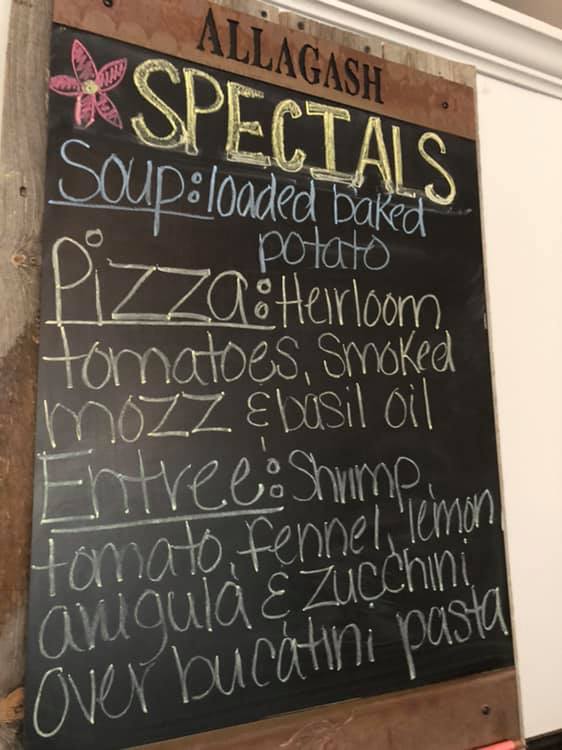 ALLAGASH
SPECIALS
Soup: loaded baked
potato
Pizza: Heirloom
tomatoes, smoked
mozz & basil oil
Entree: Shrimp,
tomato, fennel, lemon,
arugula & zucchini
over bucatini pasta